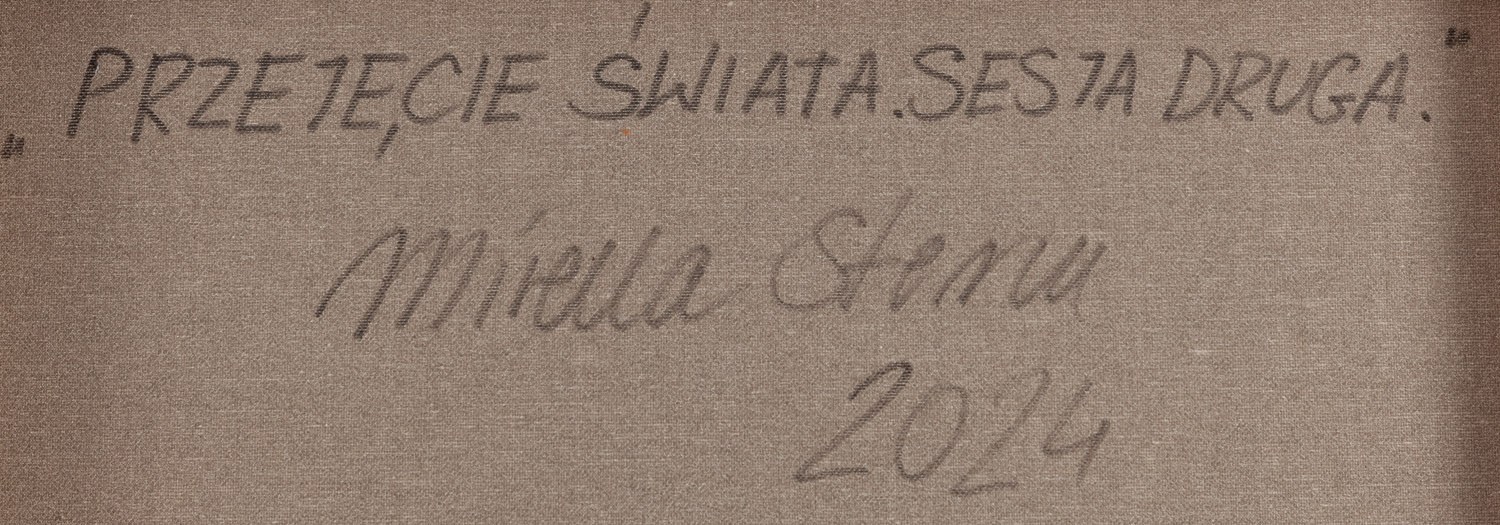 „PRZEJĘCIE ŚWIATA. SESJA DRUGA."
Mirella Stern
2024